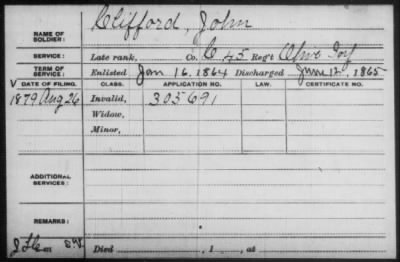 NAME OF SOLDIER: Clifford, John
SERVICE: Late rank, Co. C, 45 Reg't Ohio Inf
TERM OF SERVICE: Enlisted Jan 16, 1864 Discharged June 12, 1865
V DATE OF FILING. CLASS. APPLICATION NO. LAW. CERTIFICATE NO.
1879 Aug 26 Invalid, 305691
Widow,
Minor,
ADDITIONAL SERVICES:
REMARKS:
Died , 1 , at